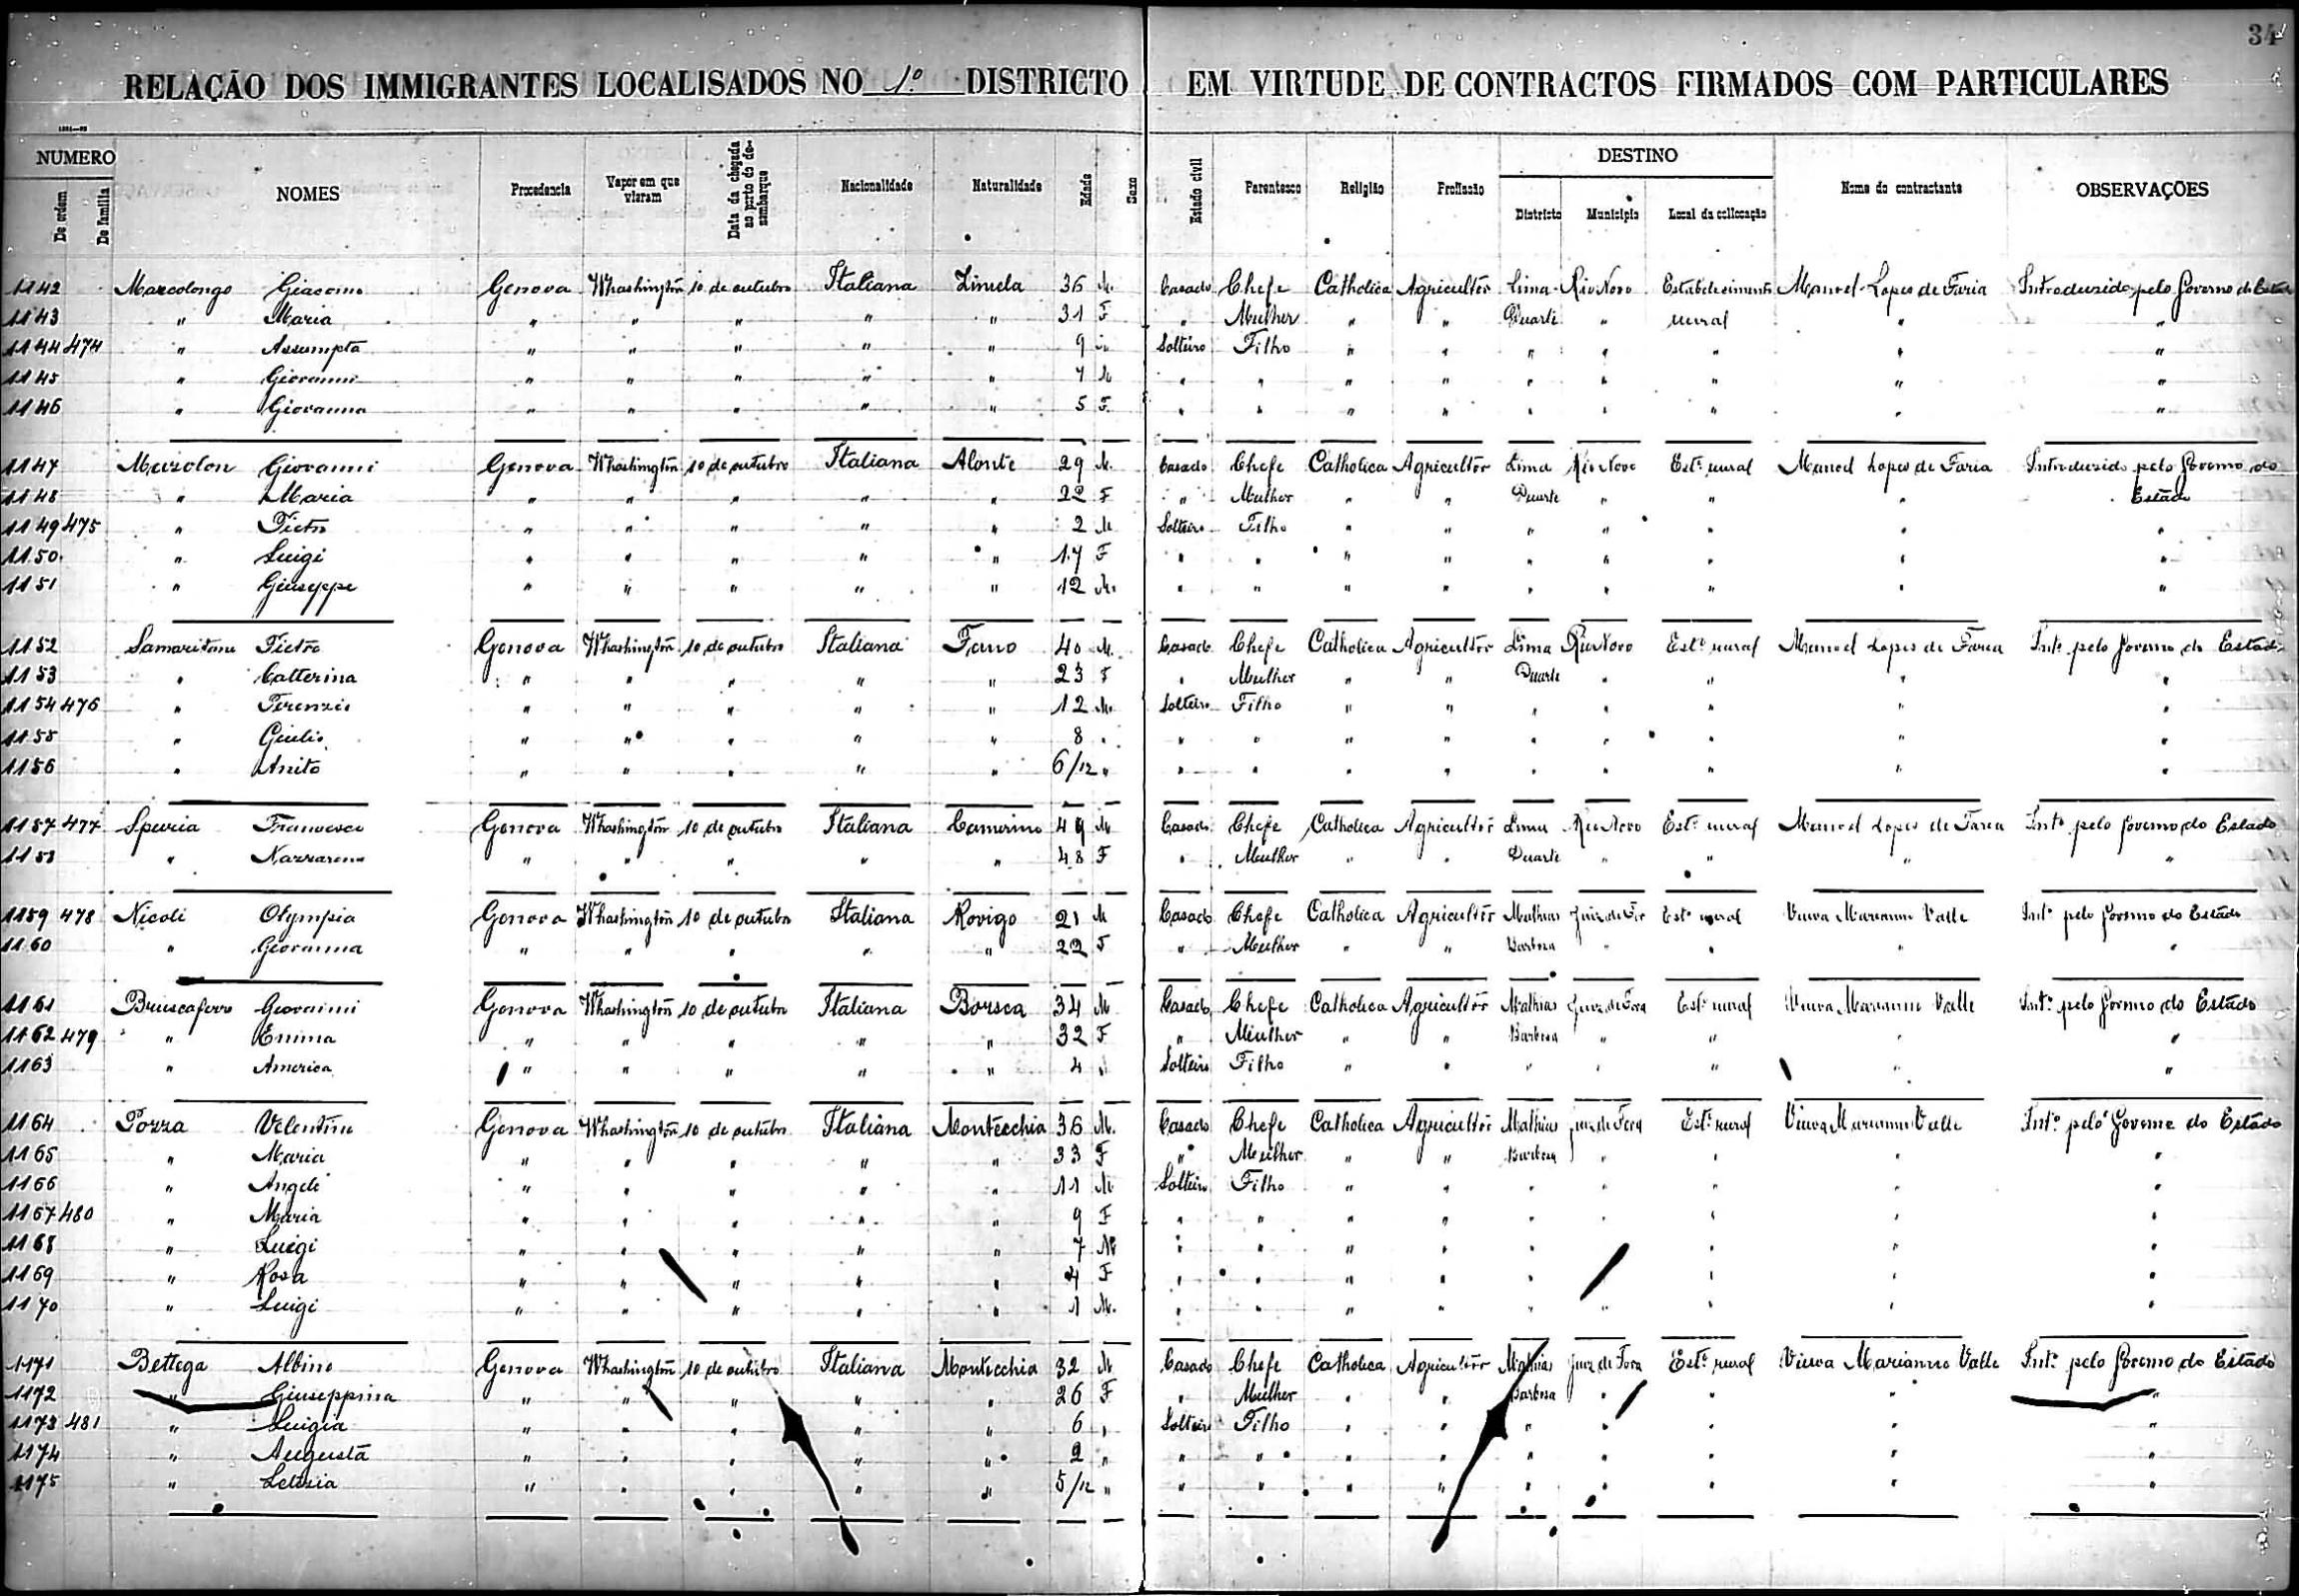 34
RELAÇÃO DOS IMMIGRANTES LOCALISADOS NO 1º DISTRICTO EM VIRTUDE DE CONTRACTOS FIRMADOS COM PARTICULARES
NUMERO DESTINO
De ordem De familia NOMES Procedencia Vapor em que vieram Data da chegada ao porto do desembarque Nacionalidade Naturalidade Edade Sexo Estado civil Parentesco Religião Profissão Districto Municipio Local da collocação Nome do contractante OBSERVAÇÕES
1142 Marcolongo Giacomo Genova Whashington 10 de outubro Italiana 36 M. Casado Chefe Catholica Agricultôr Lima Rio Novo Estabelecimento Manoel Lopes de Faria Introduzido pelo Governo do Estado
1143 " Maria " " " " " 31 F " Mulher " " Duarte " rural " "
1144 474 " Assumpta " " " " " 9 " Solteiro Filho " " " " " " "
1145 " Giovanni " " " " " 7 M " " " " " " " " "
1146 " Giovanna " " " " " 5 F. " " " " " " " " "
1147 Giovanni Genova Whashington 10 de outubro Italiana Alonte 29 M. Casado Chefe Catholica Agricultôr Lima Rio Novo Estº rural Manoel Lopes de Faria Introduzido pelo Governo do
1148 " Maria " " " " " 22 F " Mulher " " Duarte " " " Estado
1149 475 " Pietro " " " " " 2 M Solteiro Filho " " " " " " "
1150 " Luigi " " " " " 17 F " " " " " " " " "
1151 " Giuseppe " " " " " 12 M. " " " " " " " " "
1152 Samaritani Pietro Genova Whashington 10 de outubro Italiana Fano 40 M. Casado Chefe Catholica Agricultôr Lima Rio Novo Estº rural Manoel Lopes de Faria Intº pelo Governo do Estado
1153 " Catterina " " " " " 23 F " Mulher " " Duarte " " " "
1154 476 " " " " " " 12 M. Solteiro Filho " " " " " " "
1155 " Giulio " " " " " 8 " " " " " " " " " "
1156 " Anito " " " " " 6/12 " " " " " " " " " "
1157 477 Francesco Genova Whashington 10 de outubro Italiana Camerino 49 M Casado Chefe Catholica Agricultôr Lima Rio Novo Estº rural Manoel Lopes de Faria Intº pelo Governo do Estado
1158 " Nazzarena " " " " " 48 F " Mulher " " Duarte " " " "
1159 478 Nicoli Olympia Genova Whashington 10 de outubro Italiana Rovigo 21 M Casado Chefe Catholica Agricultôr Mathias Juiz de Fora Estº rural Viuva Marianno Valle Intº pelo Governo do Estado
1160 " Giovanna " " " " " 22 F " Mulher " " Barbosa " " " "
1161 Bruscaferro Giovanni Genova Whashington 10 de outubro Italiana Borsea 34 M Casado Chefe Catholica Agricultôr Mathias Juiz de Fora Estº rural Viuva Marianno Valle Intº pelo Governo do Estado
1162 479 " Emma " " " " " 32 F " Mulher " " Barbosa " " " "
1163 " America " " " " " 4 " Solteiro Filho " " " " " " "
1164 Pozza Valentino Genova Whashington 10 de outubro Italiana Montecchia 36 M. Casado Chefe Catholica Agricultôr Mathias Juiz de Fora Estº rural Viuva Marianno Valle Intº pelo Governo do Estado
1165 " Maria " " " " " 33 F " Mulher " " Barbosa " " " "
1166 " Angelo " " " " " 11 M Solteiro Filho " " " " " " "
1167 480 " Maria " " " " " 9 F " " " " " " " " "
1168 " Luigi " " " " " 7 M " " " " " " " " "
1169 " Rosa " " " " " 4 F " " " " " " " " "
1170 " Luigi " " " " " 1 M. " " " " " " " " "
1171 Bettega Albino Genova Whashington 10 de outubro Italiana Montecchia 32 M Casado Chefe Catholica Agricultôr Mathias Juiz de Fora Estº rural Viuva Marianno Valle Intº pelo Governo do Estado
1172 " Giuseppina " " " " " 26 F " Mulher " " Barbosa " " " "
1173 481 " Luigia " " " " " 6 " Solteiro Filho " " " " " " "
1174 " Augusta " " " " " 2 " " " " " " " " " "
1175 " Letizia " " " " " 5/12 " " " " " " " " " "